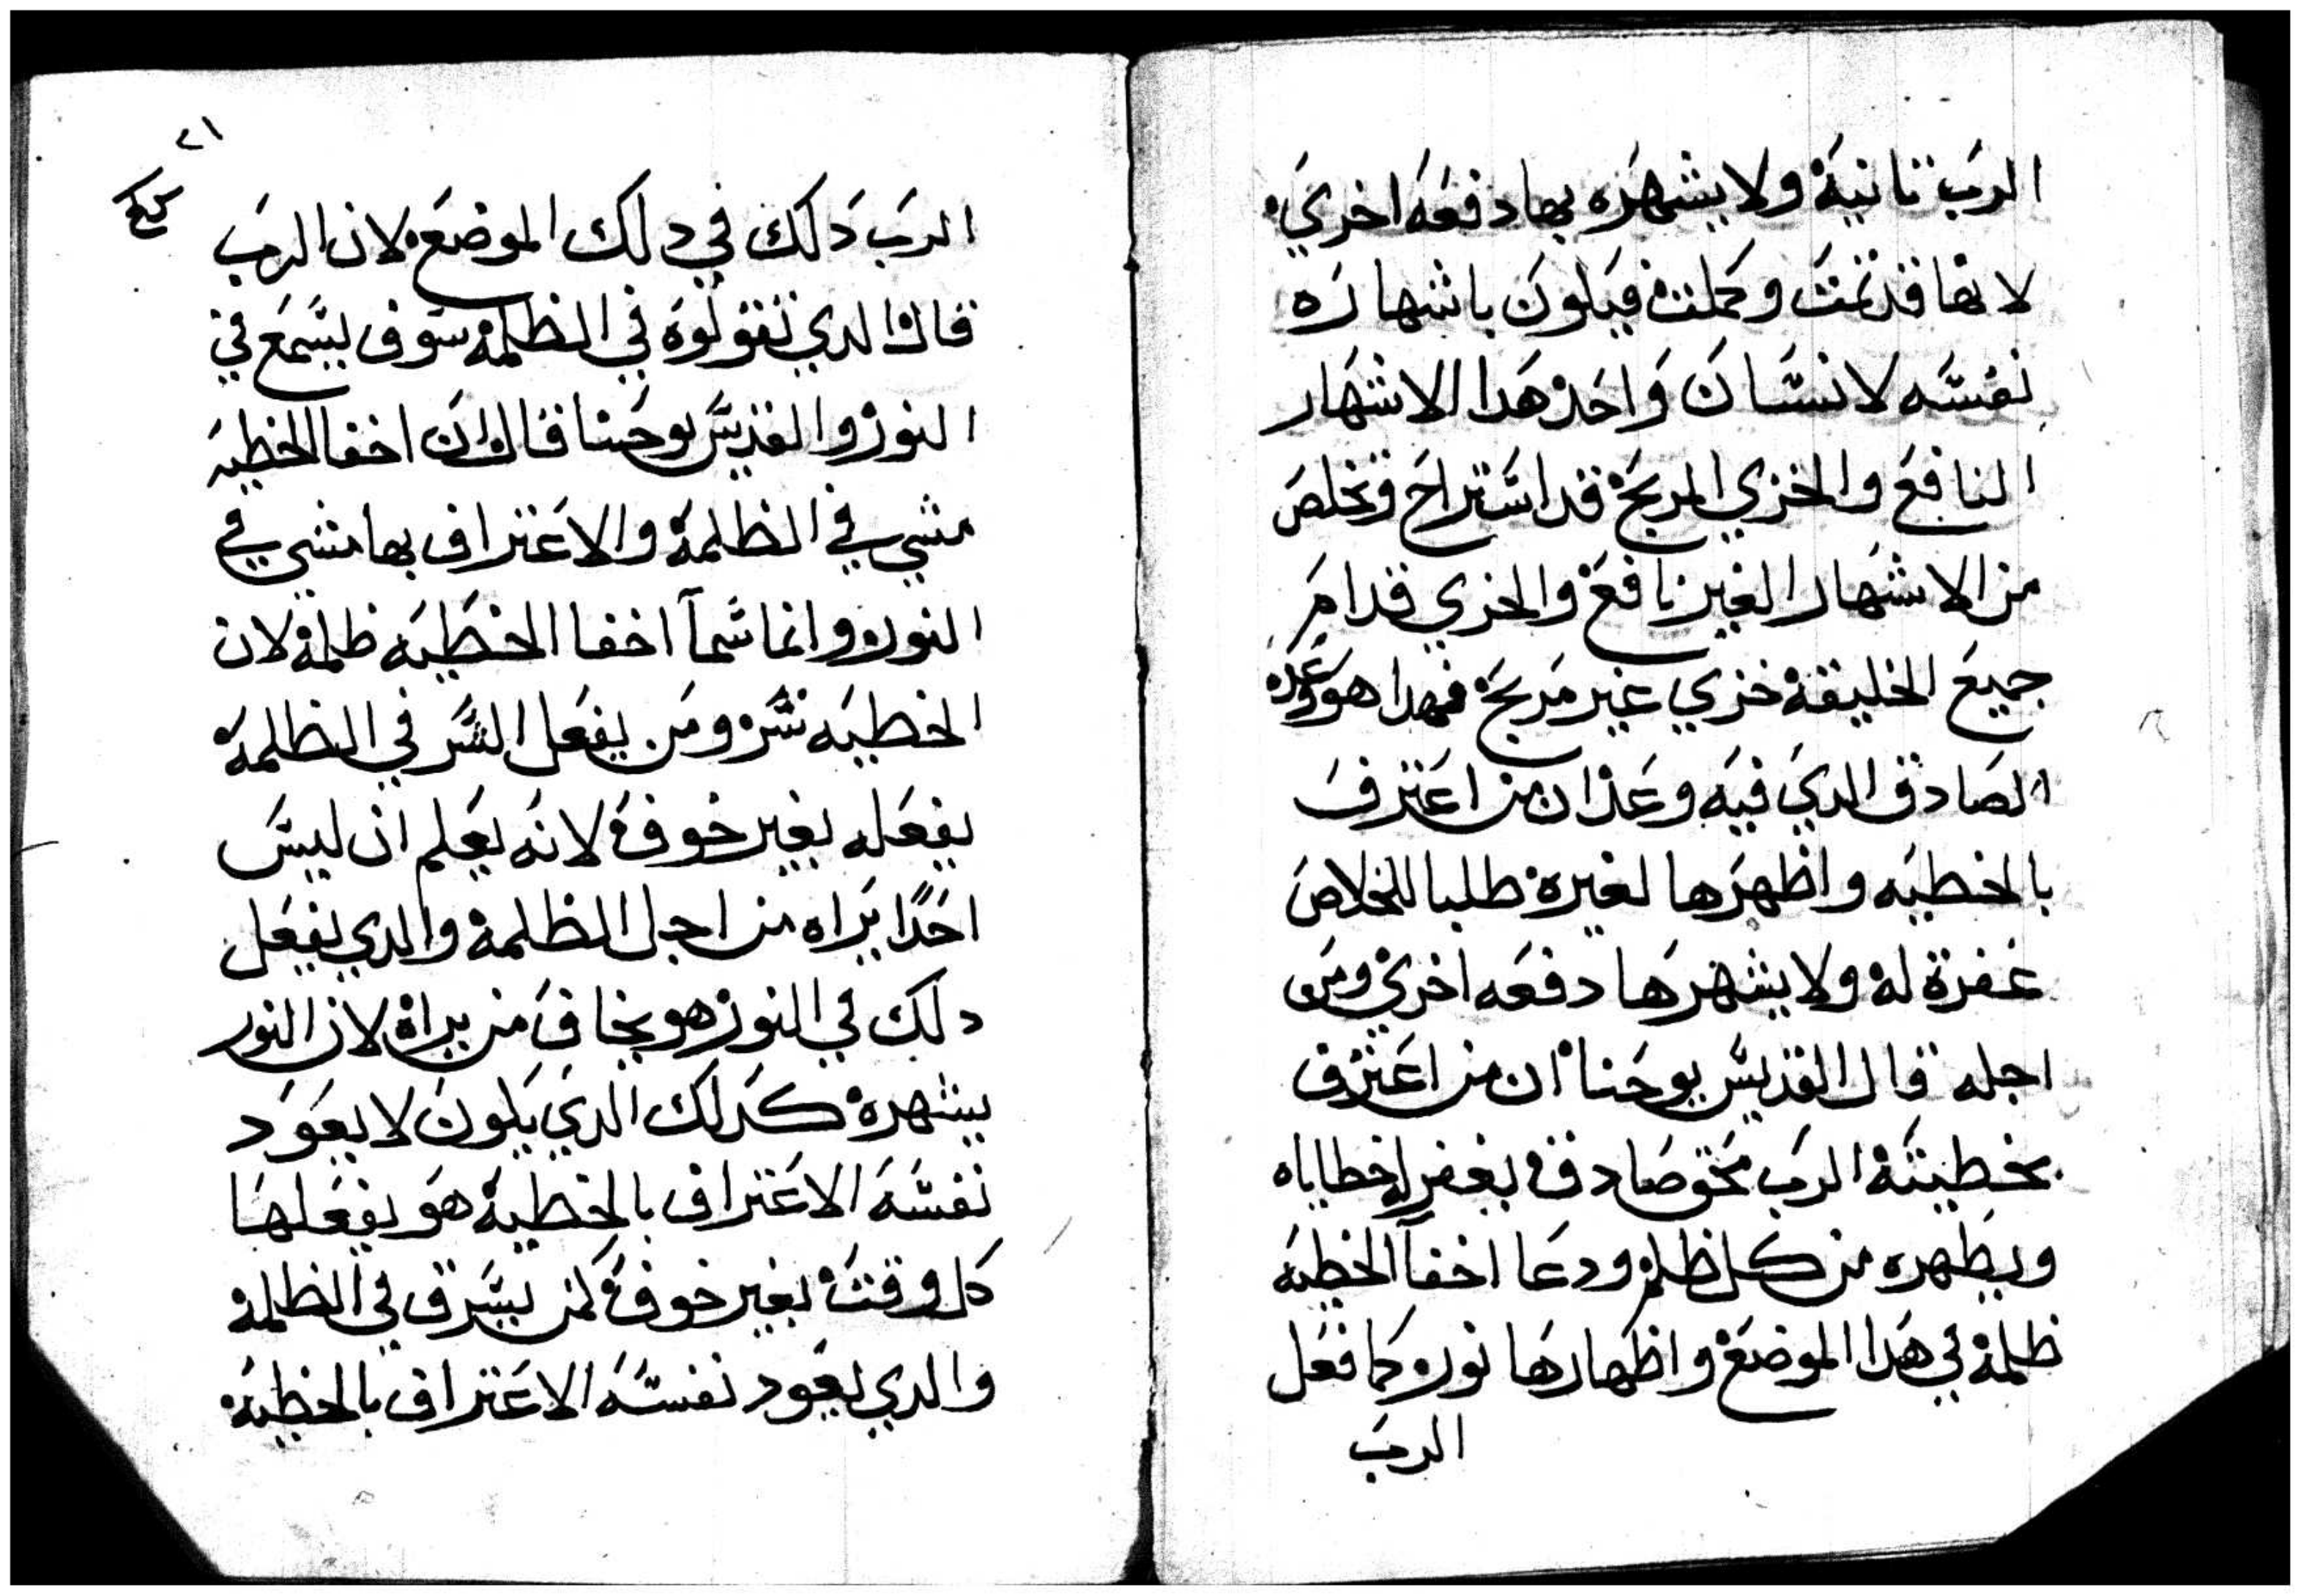 الرب تانية ولا يشهره بها دفعه اخري
لانها قد تمت وكملت فيكون باشهاره
نفسه لانسان واحد هدا الاشهار
النافع والخزي المربح قد استراح وتخلص
من الاشهار الغير نافع والخزي قدام
جميع الخليقة خزي غير مربح فهدا هو وعده
الصادق الدي فيه وعد ان من اعترف
بالخطيه واظهرها لغيره طلبا للخلاص
غفرة له ولا يشهرها دفعه اخري ومن
اجله قال القديس يوحنا ان من اعترف
بخطيته الرب محق صادق يغفر له خطاياه
ويطهره من كل ظلم ودعا اخفا الخطيه
ظلمة في هدا الموضع واظهارها نور كما فعل
الرب
٢١
الرب دلك في دلك الموضع لان الرب
قال الدي تقولوه في الظلمة سوف يسمع في
النور والقديس يوحنا قال ان اخفا الخطيه
مشي في الظلمة والاعتراف بها مشي في
النور وانما سمآ اخفا الخطيه ظلمة لان
الخطيه شر ومن يفعل الشر في الظلمة
يفعله بغير خوف لانه يعلم ان ليس
احدًا يراه من اجل الظلمة والدي يفعل
دلك في النور هو يخاف من يراه لان النور
يشهره كدلك الدي يكون لا يعود
نفسه الاعتراف بالخطية هو يفعلها
كل وقت بغير خوف كمن يسرق في الظلمة
والدي يعود نفسه الاعتراف بالخطية